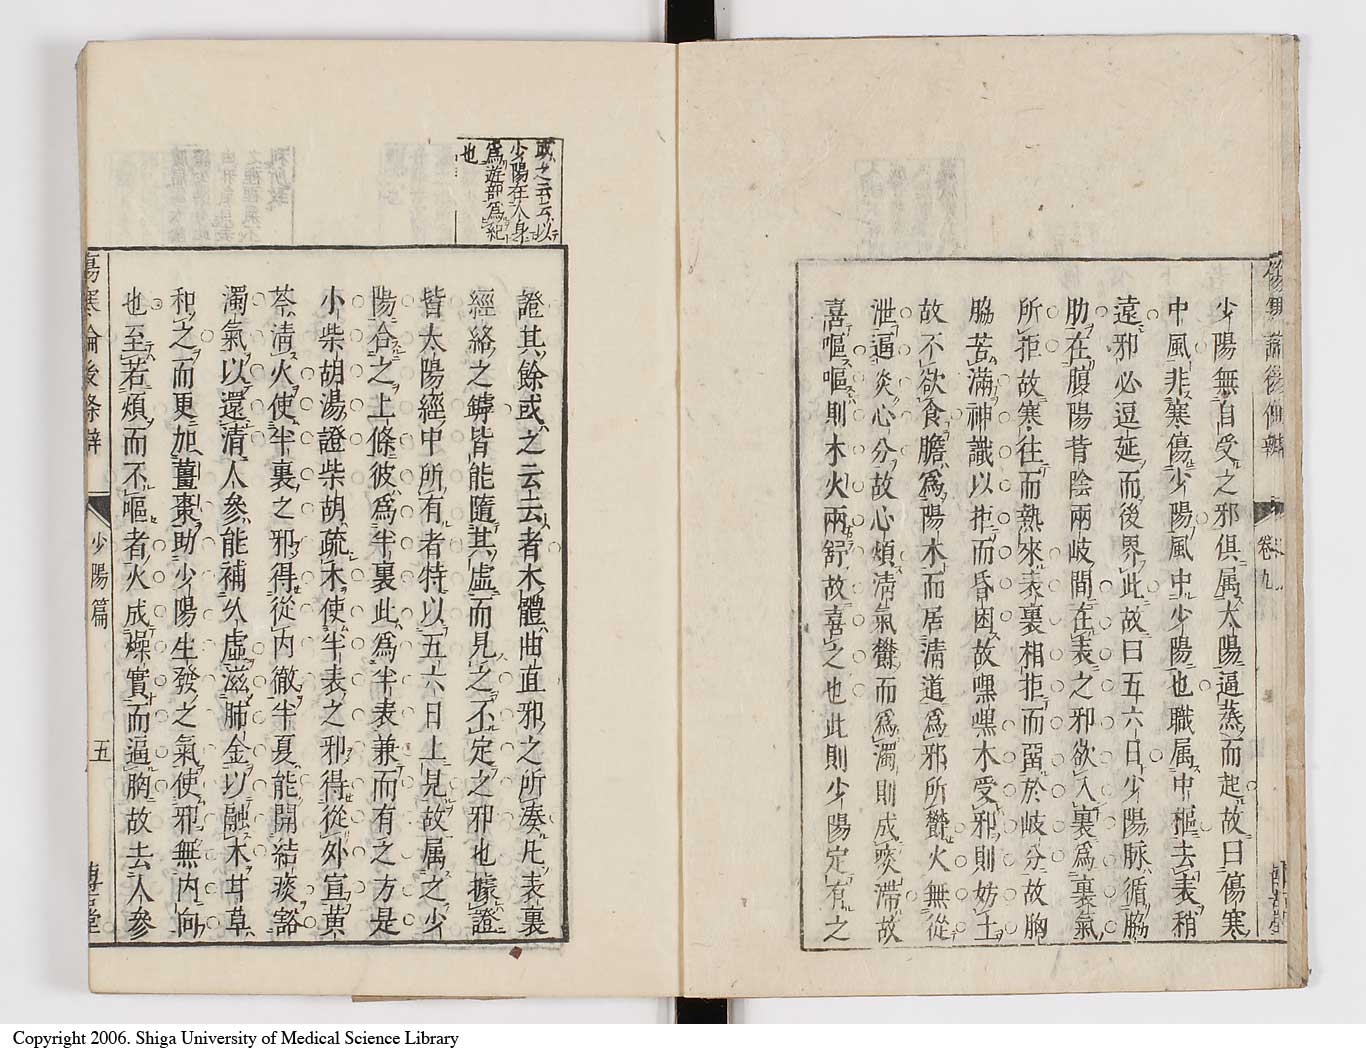 少陽無自受之邪俱属太陽逼蒸而起故曰傷寒
中風非寒傷少陽風中少陽也職属中樞去表稍
遠邪必逗延而後界此故曰五六日少陽脉循脇
肋在腹陽背陰兩岐間在表之邪欲入裏為裏氣
所拒故寒往而熱來表裏相拒而畱於岐分故胸
脇苦滿神識以拒而昏困故嘿嘿木受邪則妨土
故不欲食膽為陽木而居清道為邪所鬱火無從
泄逼炎心分故心煩清氣鬱而為濁則成痰滯故
喜嘔嘔則木火兩舒故喜之也此則少陽定有之
卷九
或之云云以
少陽在人身
為遊部為紀
也
證其餘或之云云者木體曲直邪之所湊凢表裏
經絡之罅皆能隨其虛而見之不定之邪也據證
皆太陽經中所有者特以五六日上見故属之少
陽合之上條彼為半裏此為半表兼而有之方是
小柴胡湯證柴胡疏木使半表之邪得從外宣黄
芩清火使半裏之邪得從内徹半夏能開結痰豁
濁氣以還清人參能補久虛滋肺金以融木甘草
和之而更加薑棗助少陽生發之氣使邪無内向
也至若煩而不嘔者火成燥實而逼胸故去人參
傷寒論後條辨
少陽篇
五
博古堂
Copyright 2006. Shiga University of Medical Science Library